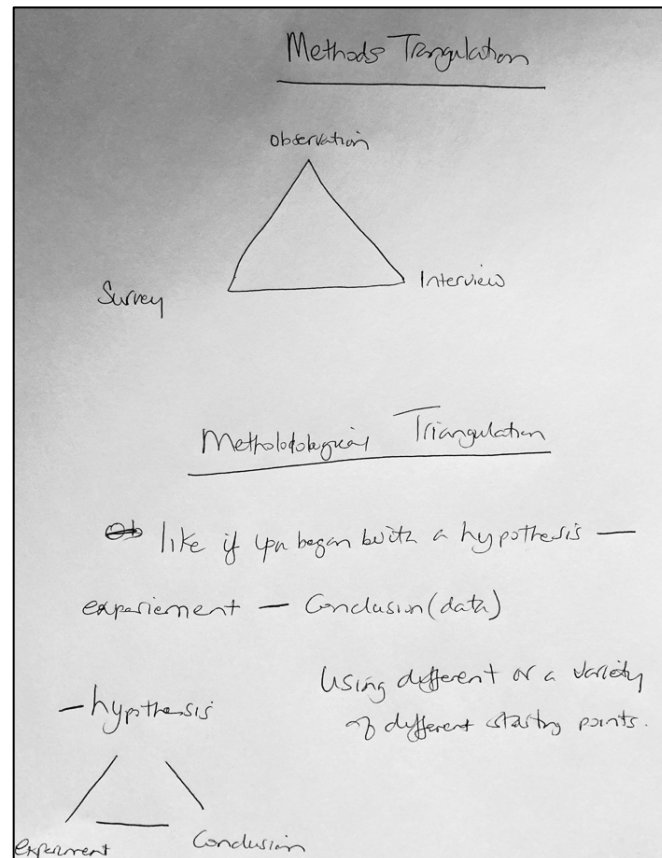 Methods Trangulation
Observation
Survey
Interview
Metholodological Triangulation
like if you began with a hypothesis —
experiement — Conclusion (data)
Using different or a variety
of different starting points.
— hypothesis
experiment
Conclusion